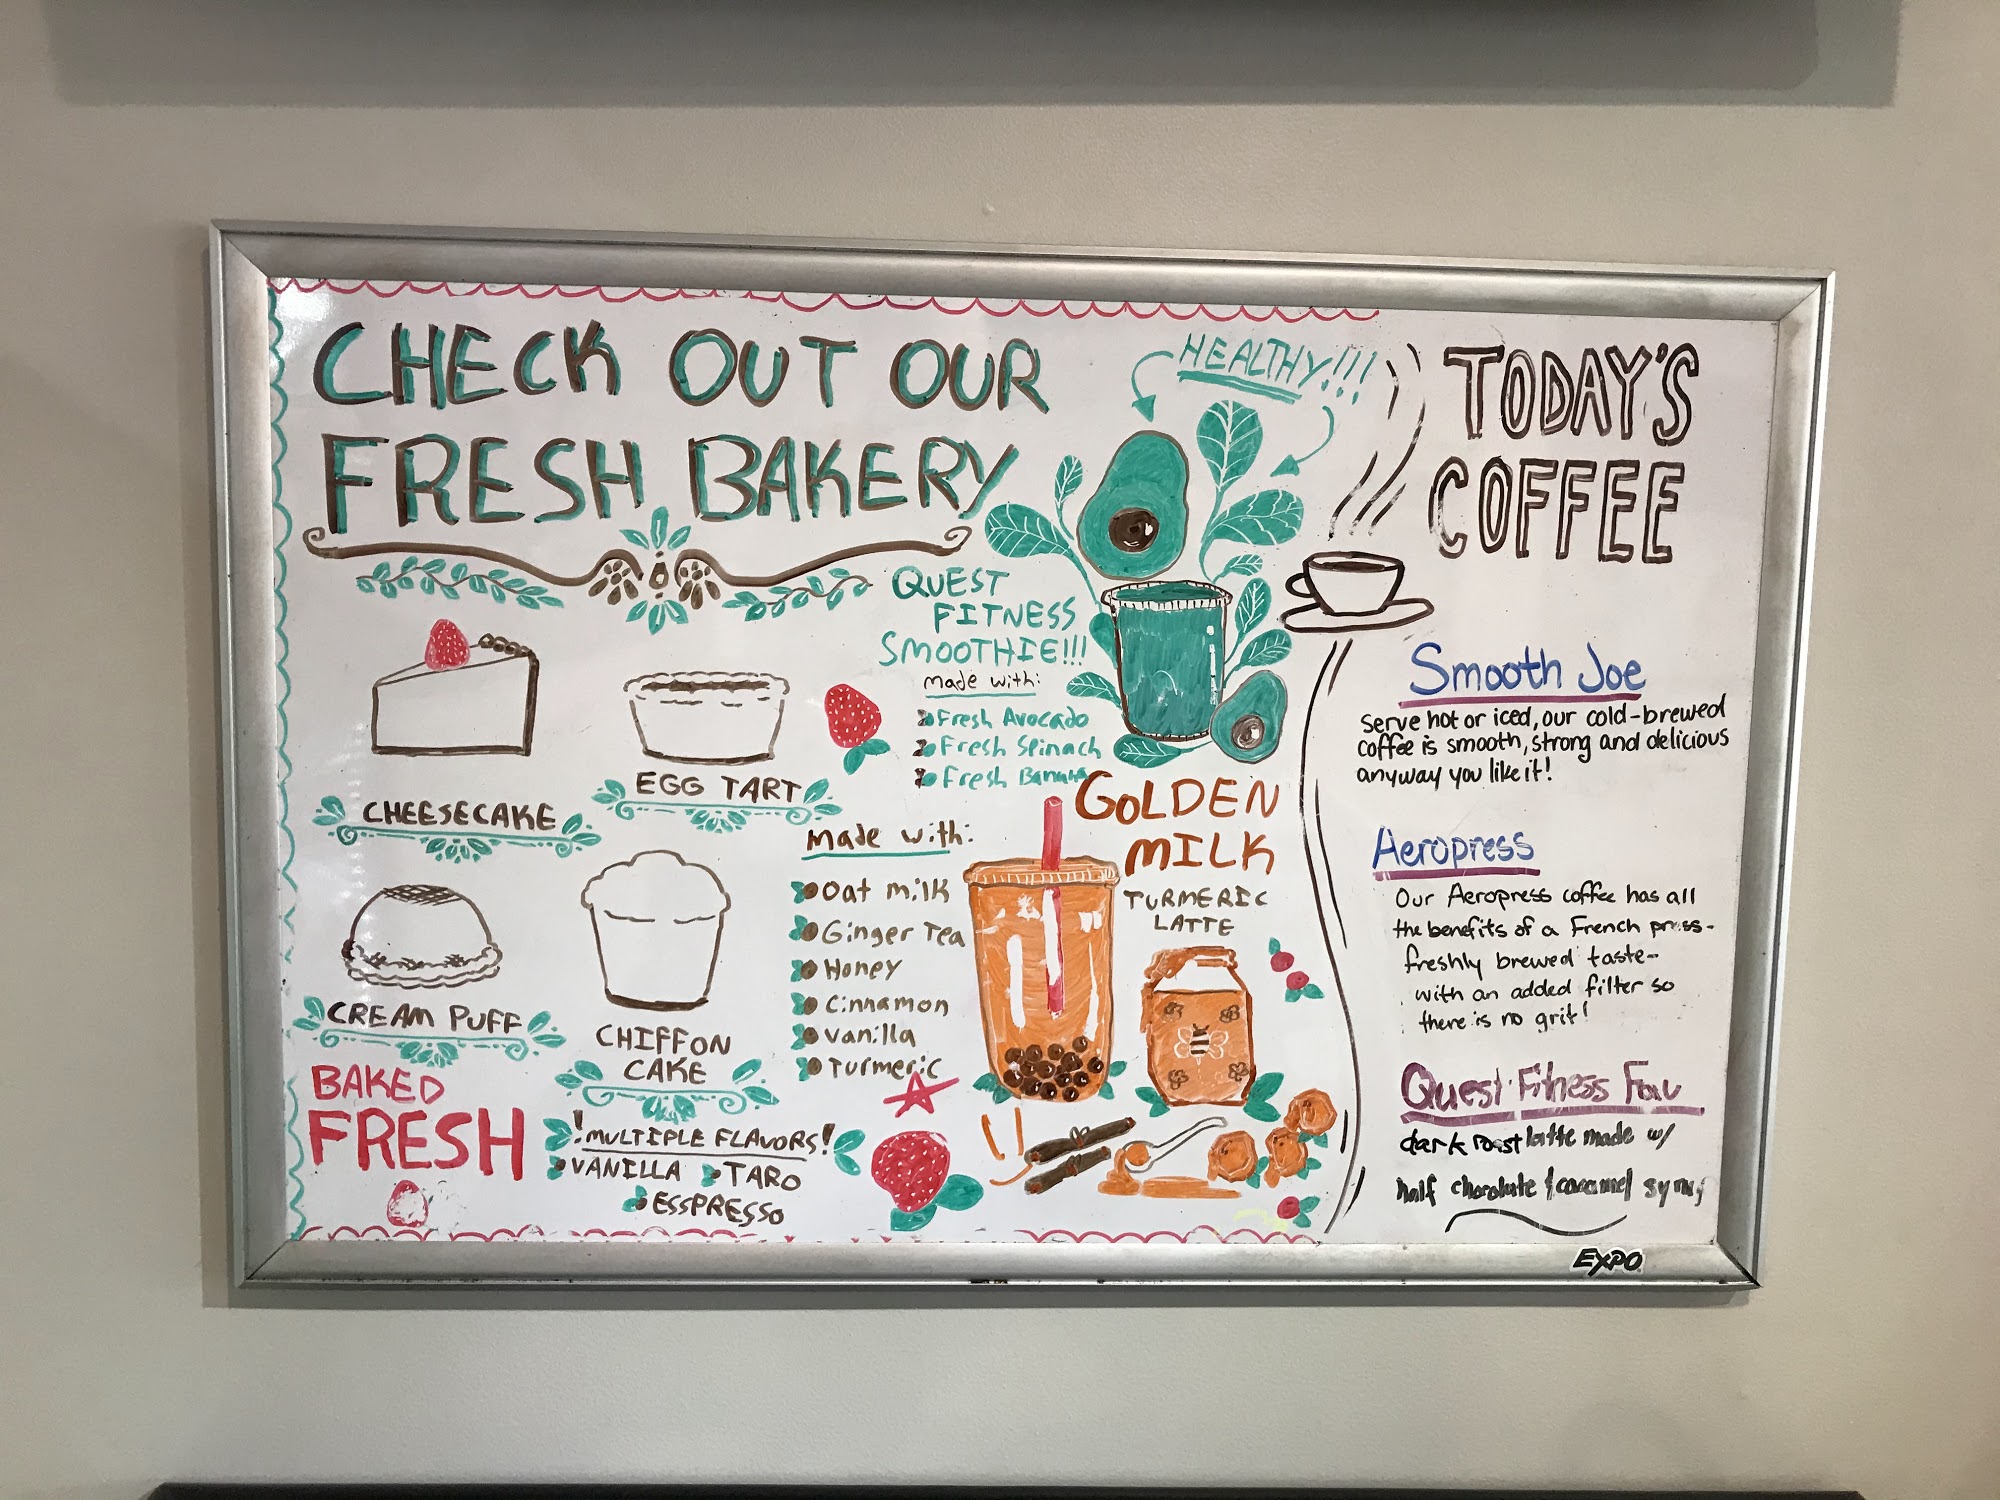 CHECK OUT OUR
FRESH BAKERY
CHEESECAKE
EGG TART
CREAM PUFF
CHIFFON
CAKE
!MULTIPLE FLAVORS!
VANILLA
TARO
ESSPRESSO
BAKED
FRESH
HEALTHY!!!
QUEST
FITNESS
SMOOTHIE!!!
made with:
Fresh Avocado
Fresh Spinach
Fresh Banana
GOLDEN
MILK
TURMERIC
LATTE
Made with:
Oat milk
Ginger Tea
Honey
Cinnamon
Vanilla
Turmeric
TODAY'S
COFFEE
Smooth Joe
Serve hot or iced, our cold-brewed
coffee is smooth, strong and delicious
anyway you like it!
Aeropress
Our Aeropress coffee has all
the benefits of a French press-
freshly brewed taste-
with an added filter so
there is no grit!
Quest Fitness Fav
dark roast latte made w/
half chocolate / caramel syrup
EXPO